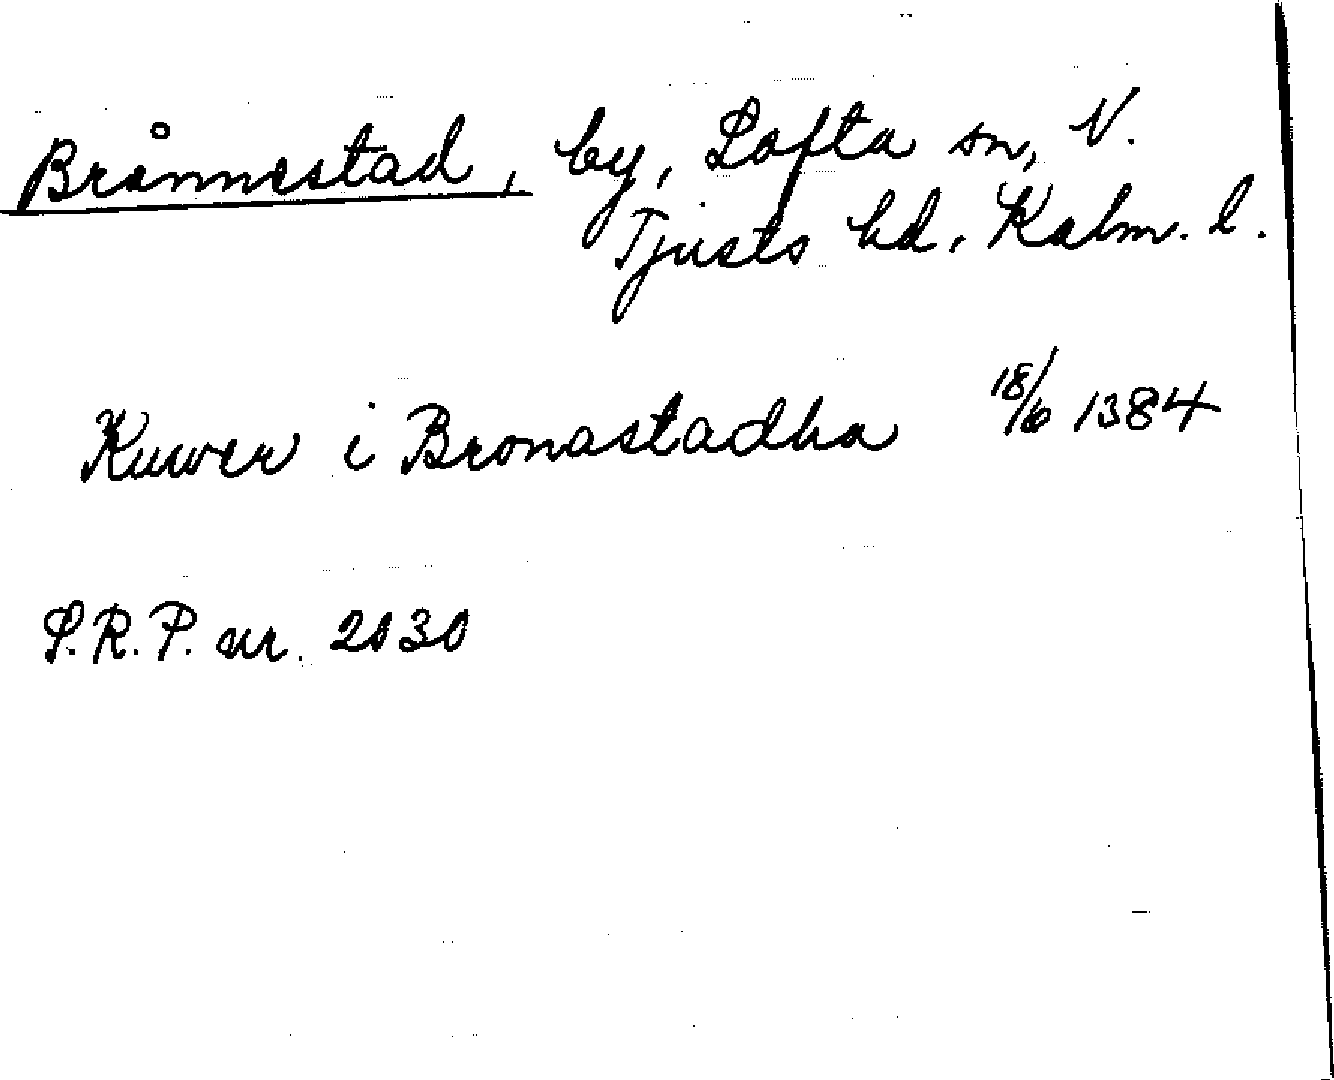 Brånnestad, by, Lofta sn, N.
Tjusts hd. Kalm. l.
Kuwer i Bronastadha 18/6 1384
S.R.P. nr. 2030